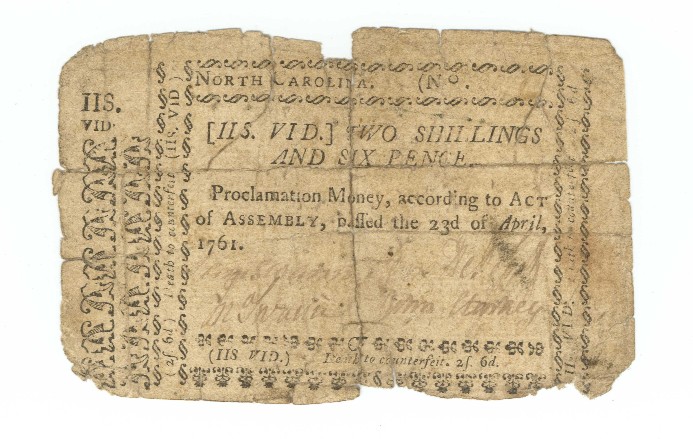 NORTH CAROLINA. (No.
IIS.
VID.
[IIS. VID.] TWO SHILLINGS
AND SIX PENCE.
Proclamation Money, according to ACT
of ASSEMBLY, passed the 23d of April,
1761.
(IIS VID.) Death to counterfeit. 2s. 6d.
2s 6d) Death to counterfeit (IIS. VID)
IIS. VID. Death to counterfeit 2s 6d